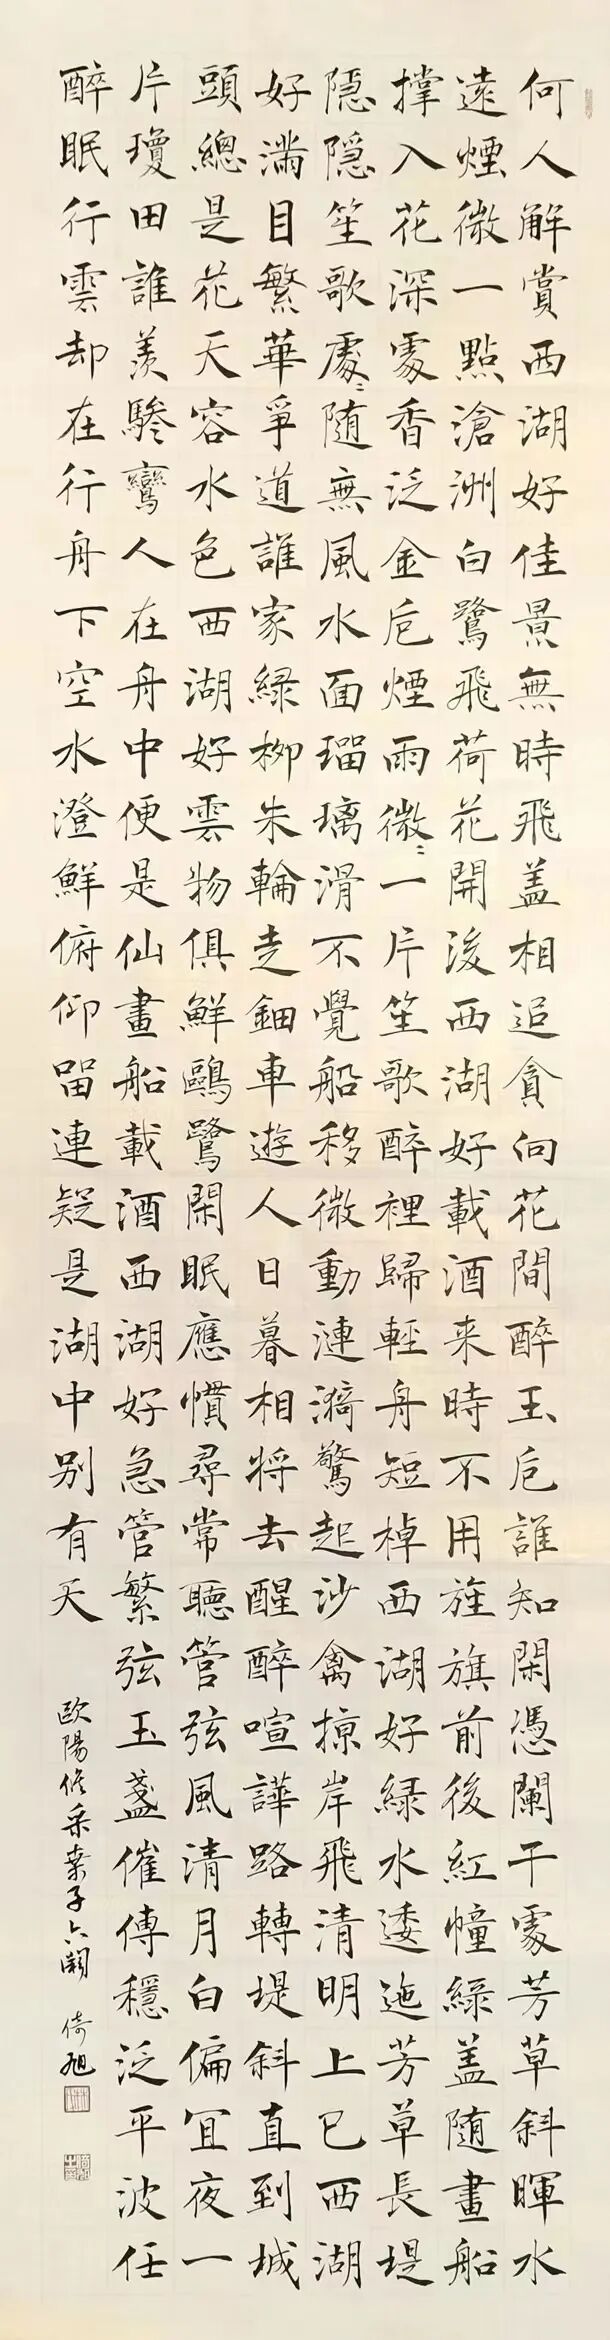 何人解賞西湖好佳景無時飛盖相追貪向花間醉玉卮誰知閑憑闌干處芳草斜暉水
遠煙微一點滄洲白鷺飛荷花開後西湖好載酒来時不用旌旗前後紅幢緑盖随畫船
撑入花深處香泛金卮煙雨微〻一片笙歌醉裡歸輕舟短棹西湖好緑水逶迤芳草長堤
隱隱笙歌處〻随無風水面瑠璃滑不覺船移微動漣漪驚起沙禽掠岸飛清明上巳西湖
好滿目繁華爭道誰家緑柳朱輪走鈿車遊人日暮相将去醒醉喧譁路轉堤斜直到城
頭總是花天容水色西湖好雲物俱鮮鷗鷺閑眠應慣尋常聽管弦風清月白偏宜夜一
片瓊田誰羨驂鸞人在舟中便是仙畫船載酒西湖好急管繁弦玉盞催傳穩泛平波任
醉眠行雲却在行舟下空水澄鮮俯仰留連疑是湖中別有天
歐陽脩采桑子六闋 倚旭